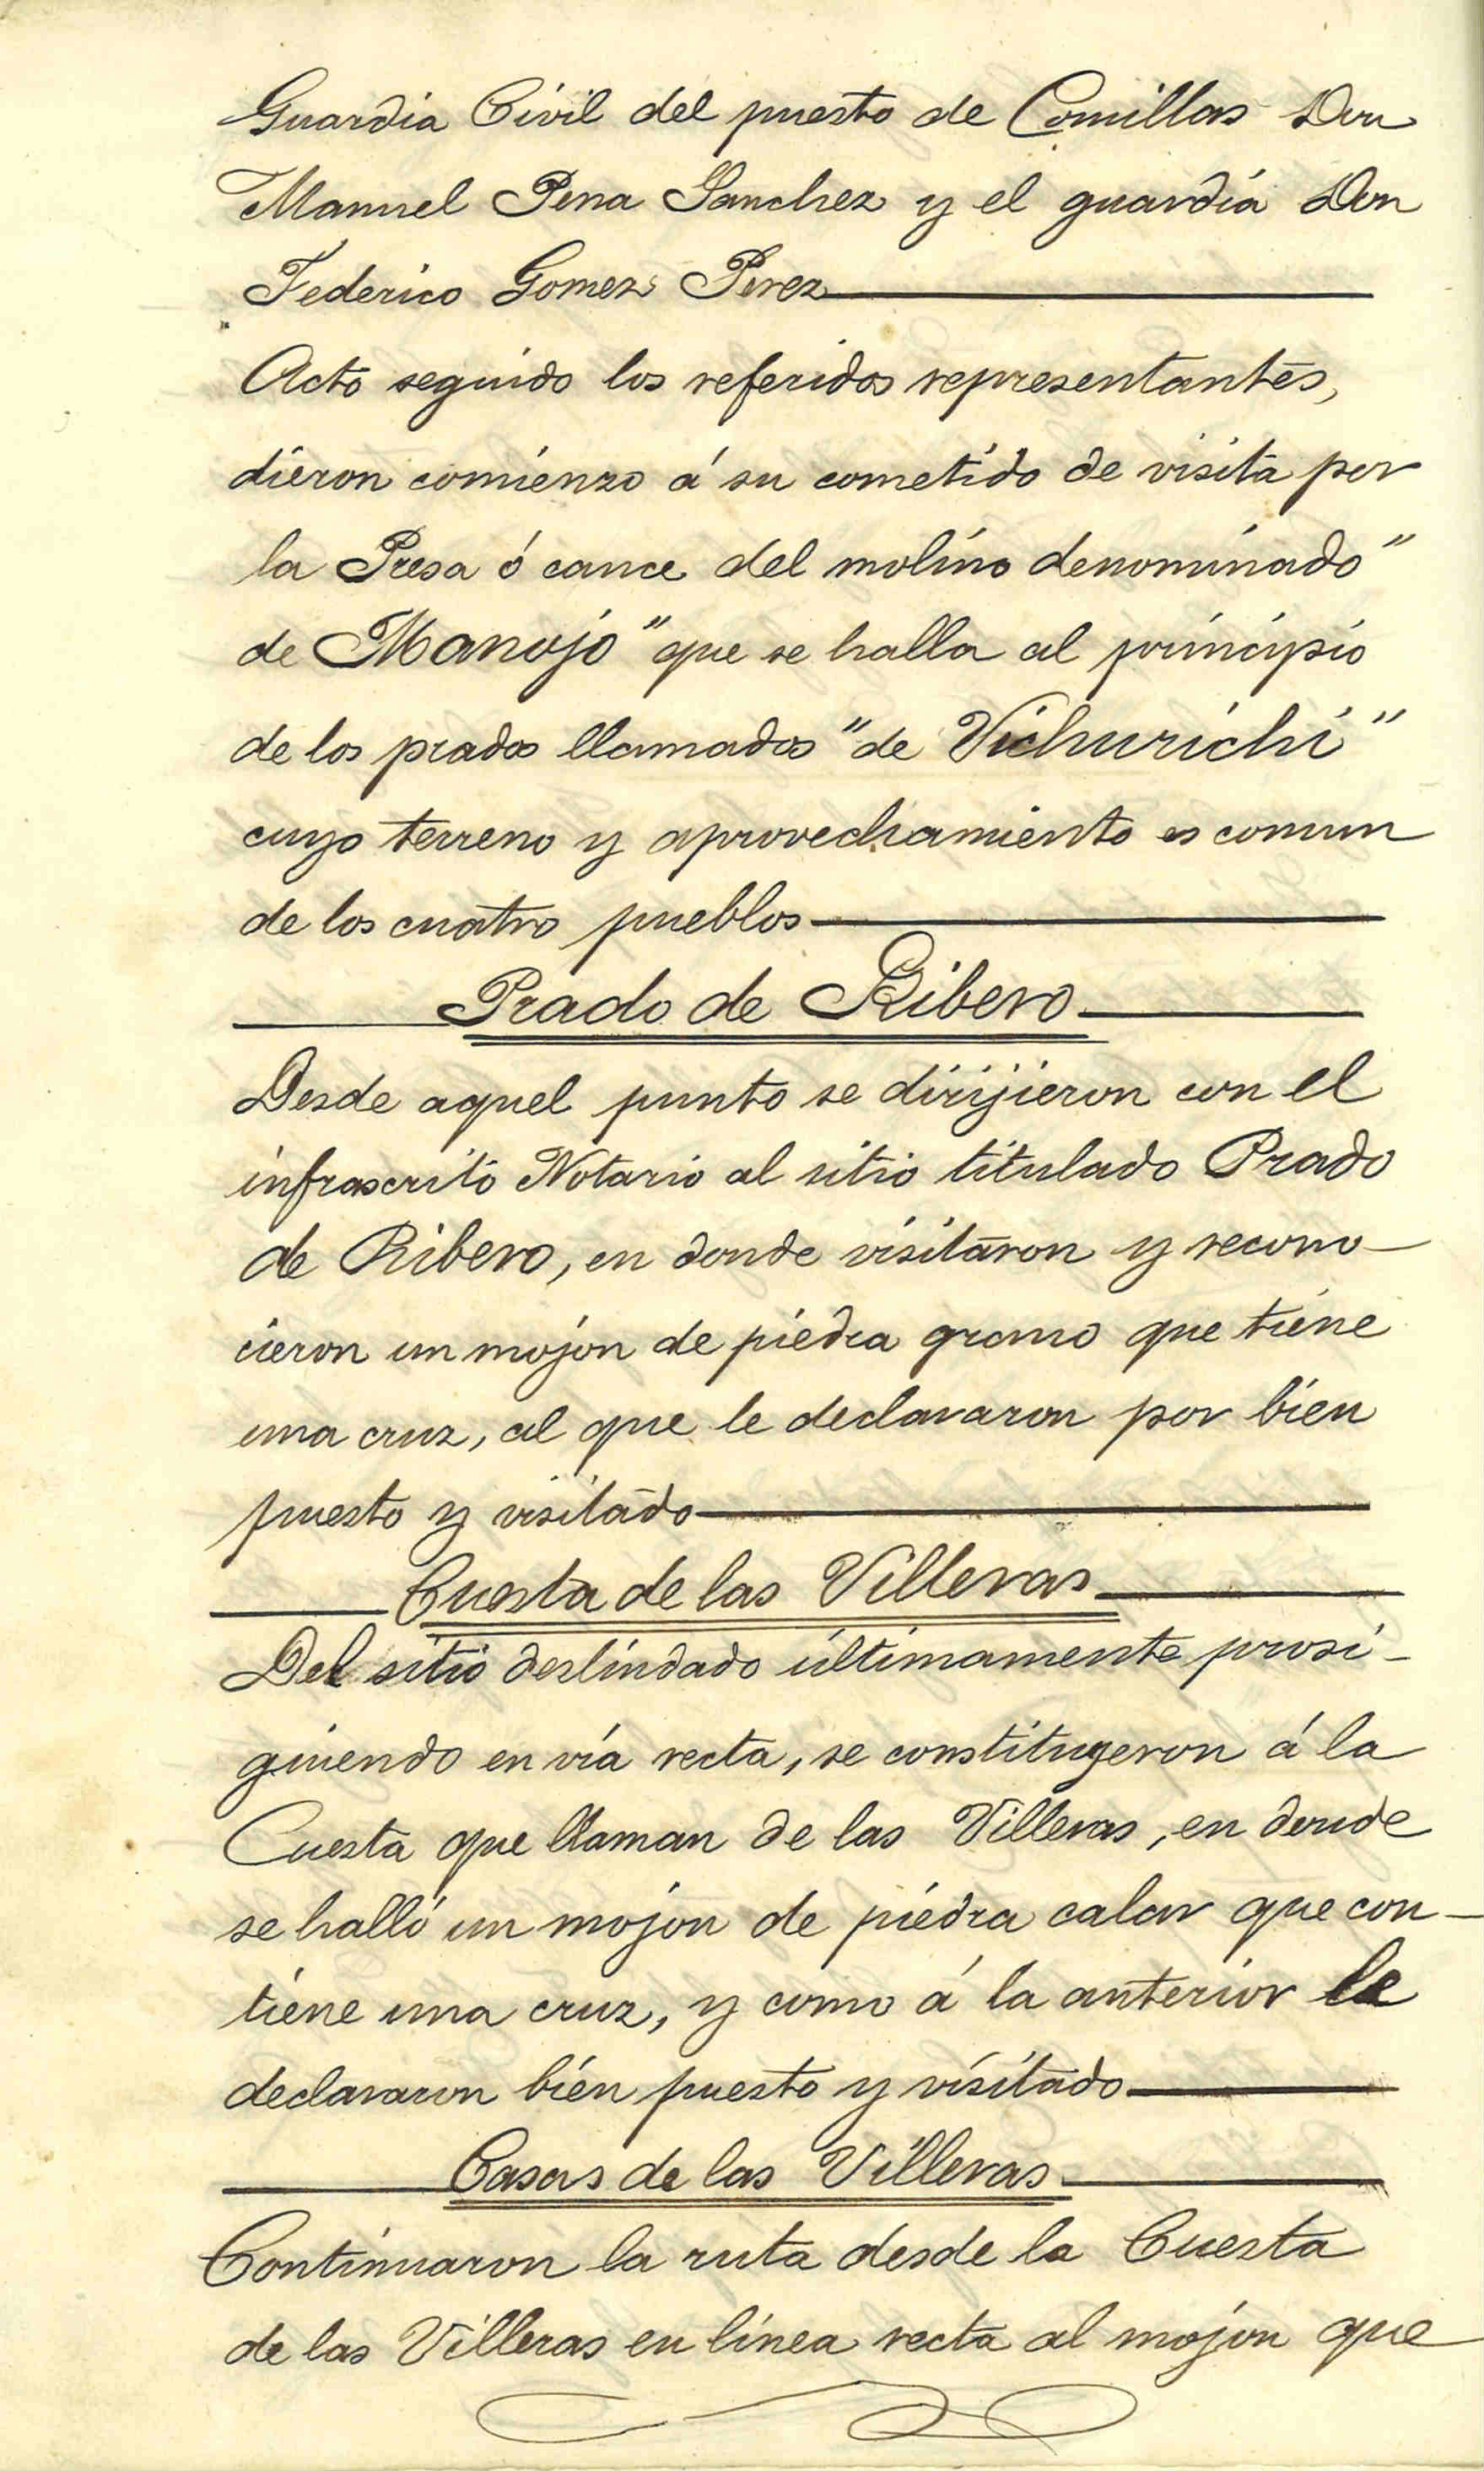 Guardia Civil del puesto de Comillas Don
Manuel Pena Sanchez y el guardia Don
Federico Gomez Perez
Acto seguido los referidos representantes,
dieron comienzo á su cometido de visita por
la Presa ó cauce del molino denominado "
de Manojo" que se halla al principio
de los prados llamados "de Vichurichi"
cuyo terreno y aprovechamiento es comun
de los cuatro pueblos
Prado de Ribero
Desde aquel punto se dirijieron con el
infrascrito Notario al sitio titulado Prado
de Ribero, en donde visitaron y recono-
cieron un mojon de piedra grano que tiene
una cruz, al que le declararon por bien
puesto y visitado
Cuesta de las Villeras
Del sitio deslindado últimamente prosi-
guiendo en vía recta, se constituyeron á la
Cuesta que llaman de las Villeras, en donde
se halló un mojon de piedra calar que con-
tiene una cruz, y como á la anterior le
declararon bien puesto y visitado
Casas de las Villeras
Continuaron la ruta desde la Cuesta
de las Villeras en línea recta al mojon que